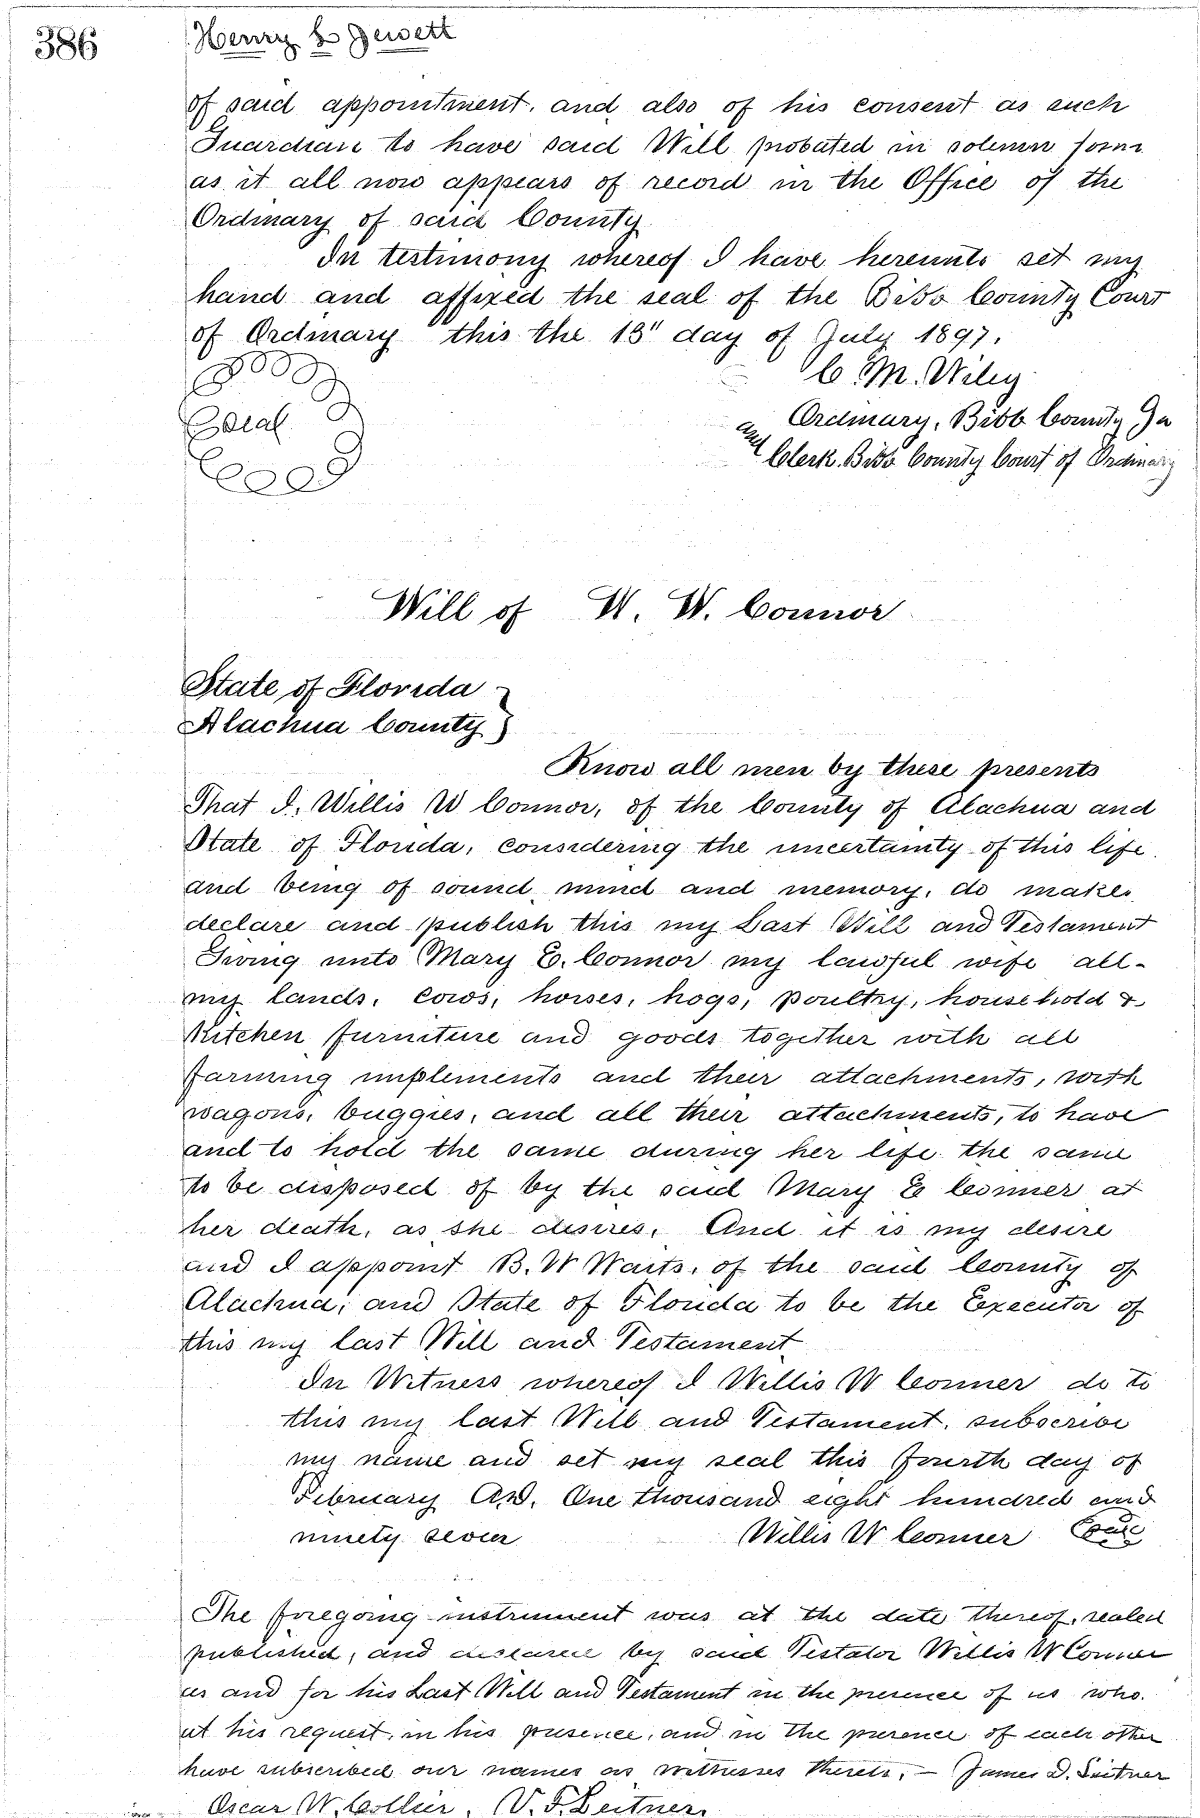 386
Henry L Jewett
of said appointment, and also of his consent as such
Guardian to have said Will probated in solemn form
as it all now appears of record in the Office of the
Ordinary of said County
In testimony whereof I have hereunto set my
hand and affixed the seal of the Bibb County Court
of Ordinary this the 13" day of July 1897.
C. M. Wiley
Seal
Ordinary, Bibb County Ga
and Clerk Bibb County Court of Ordinary
Will of W. W. Connor
State of Florida
Alachua County
Know all men by these presents
That I, Willis W Connor, of the County of Alachua and
State of Florida, considering the uncertainty of this life
and being of sound mind and memory, do make,
declare and publish this my Last Will and Testament
Giving unto Mary E. Connor my lawful wife all
my lands, cows, horses, hogs, poultry, household &
Kitchen furniture and goods together with all
farming implements and their attachments, with
wagons, buggies, and all their attachments, to have
and to hold the same during her life the same
to be disposed of by the said Mary E Conner at
her death, as she desires. And it is my desire
and I appoint B. W Waits, of the said County of
Alachua, and State of Florida to be the Executor of
this my last Will and Testament
In Witness whereof I Willis W Conner do to
this my last Will and Testament, subscribe
my name and set my seal this fourth day of
February A.D. One thousand eight hundred and
ninety seven Willis W Conner Seal
The foregoing instrument was at the date thereof, sealed
published, and declared by said Testator Willis W Conner
as and for his Last Will and Testament in the presence of us who.
at his request, in his presence, and in the presence of each other
have subscribed our names as witnesses thereto, — James D. Leitner
Oscar W. Collier, V. F. Leitner.